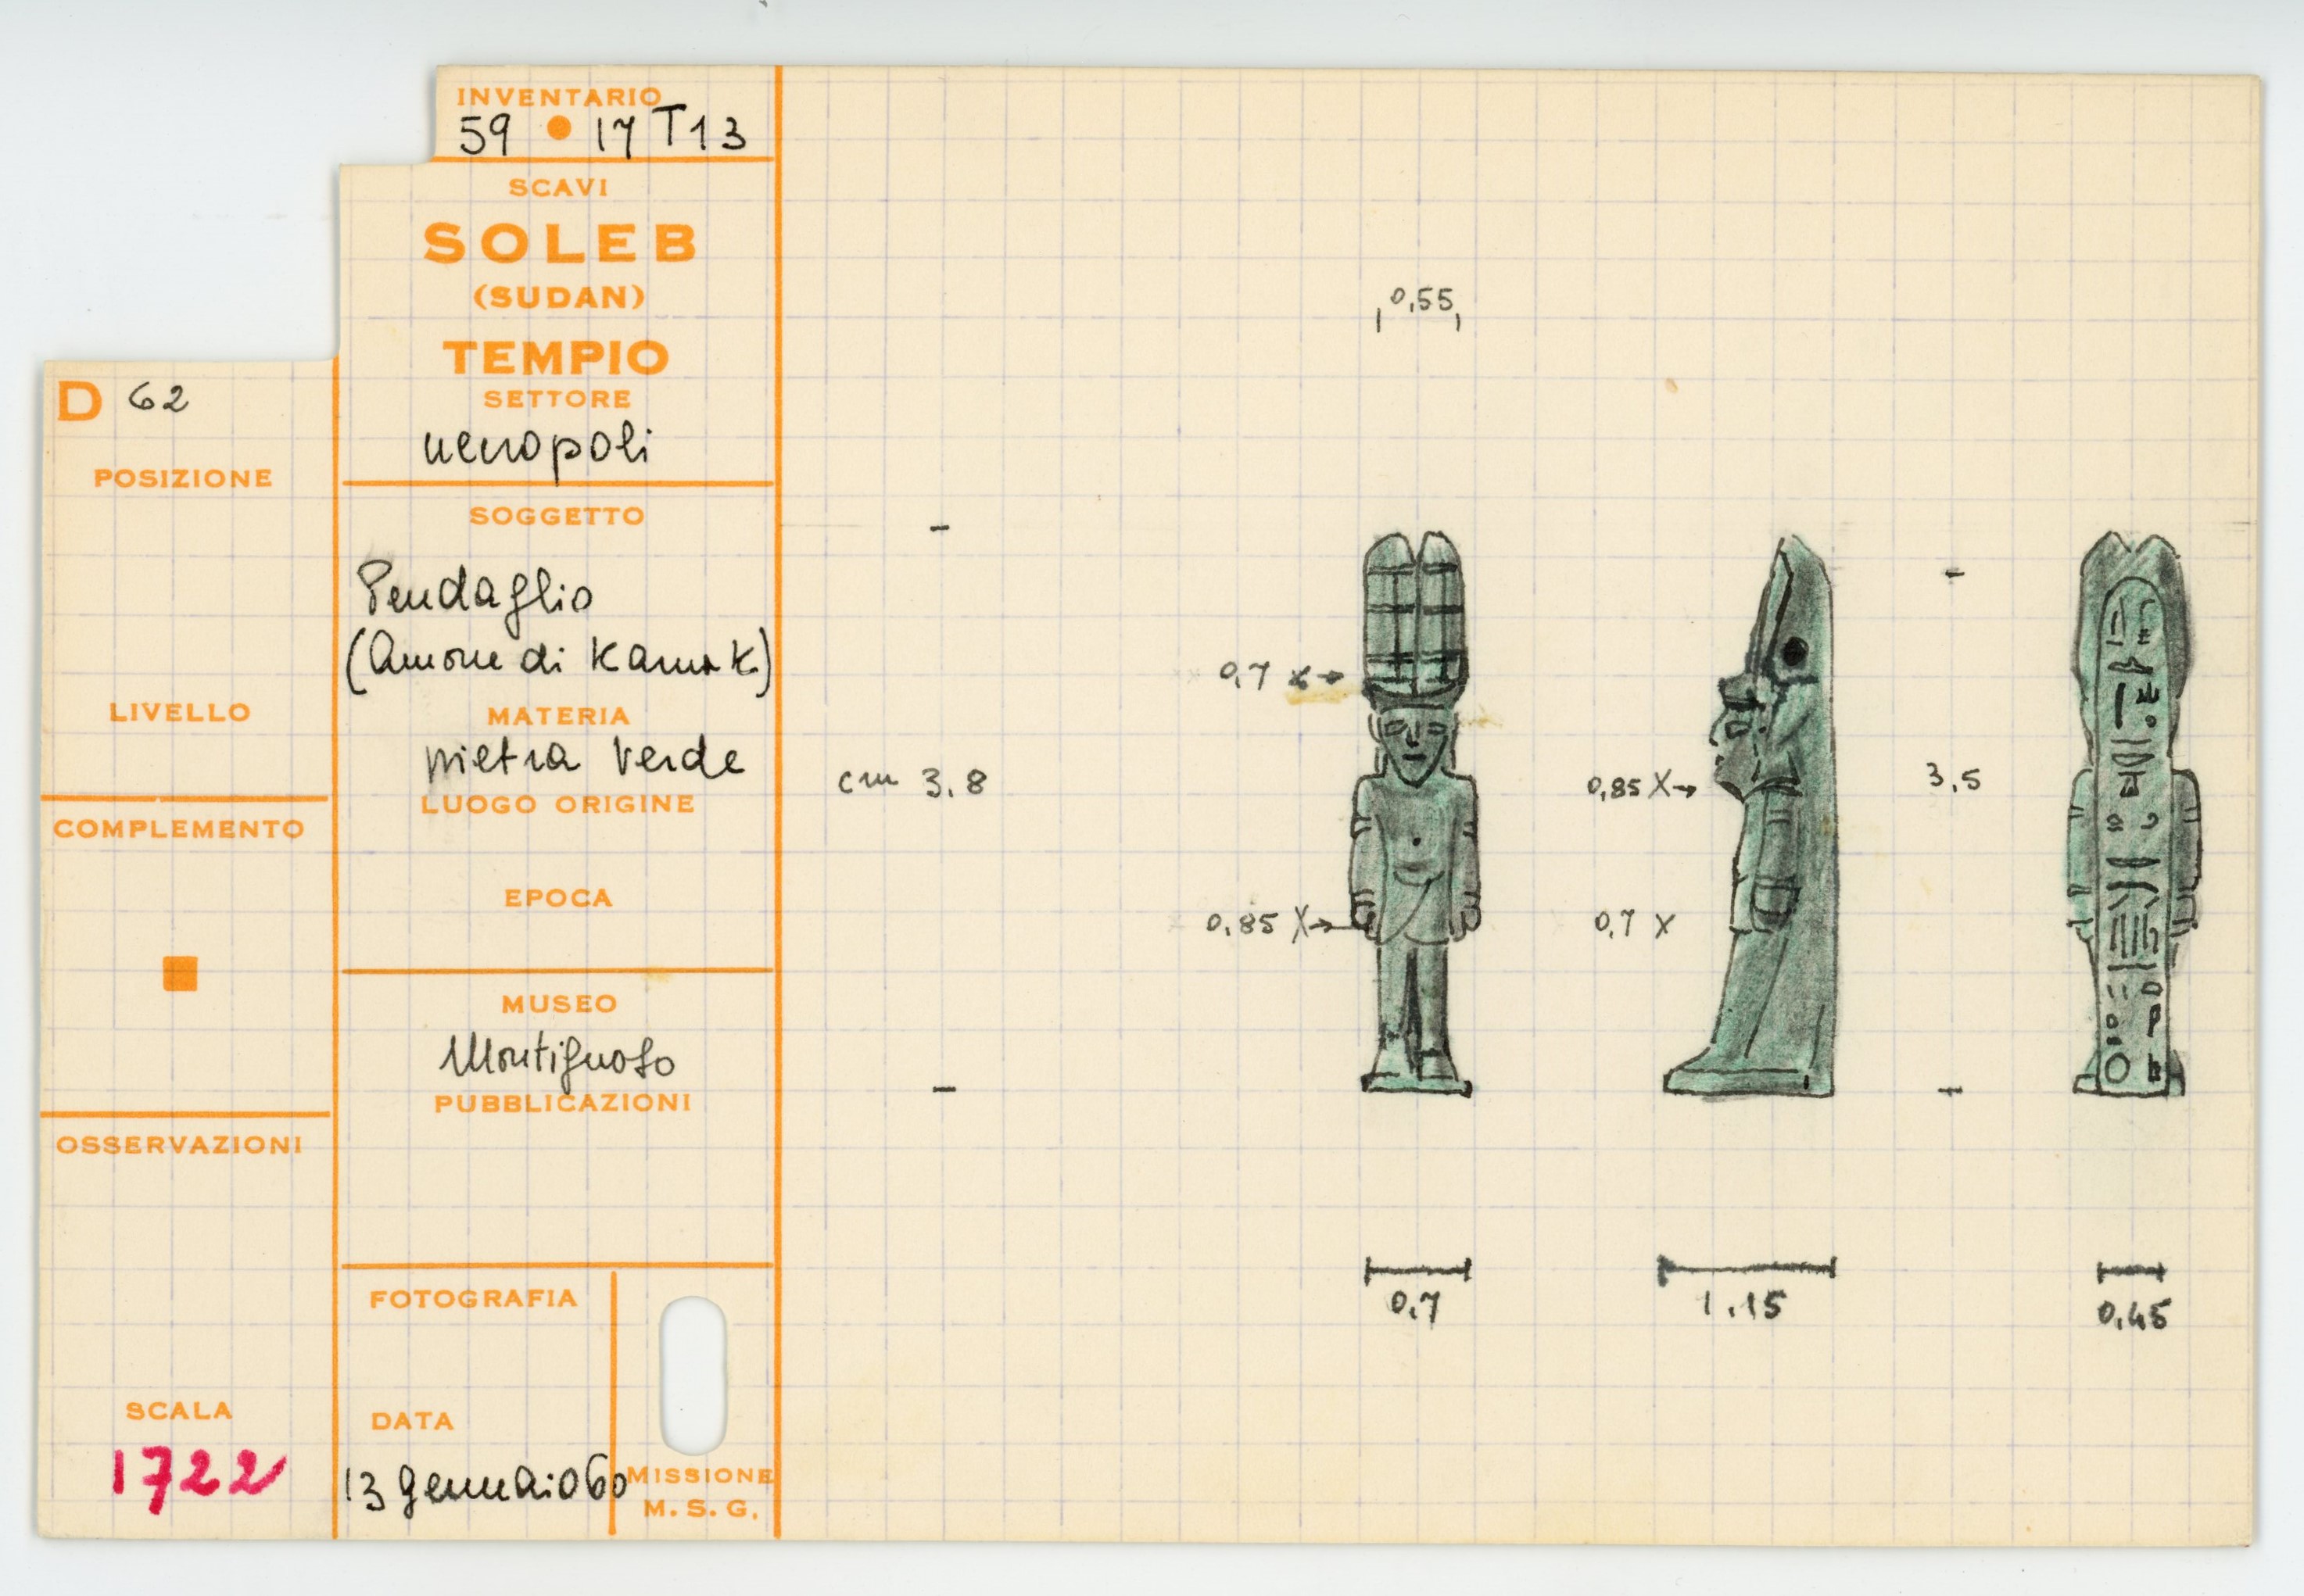 INVENTARIO
59 • 17 T13
SCAVI
SOLEB
(SUDAN)
TEMPIO
SETTORE
necropoli
SOGGETTO
Pendaglio
(Amone di Karnak)
MATERIA
pietra verde
LUOGO ORIGINE
EPOCA
MUSEO
Montignoso
PUBBLICAZIONI
FOTOGRAFIA
DATA
13 gennaio 60
MISSIONE
M. S. G.
D 62
POSIZIONE
LIVELLO
COMPLEMENTO
OSSERVAZIONI
SCALA
1722
0,55
0,7 x→
cm 3,8
0,85 X→
3,5
0,85 X→
0,7 X
0,7
1,15
0,45